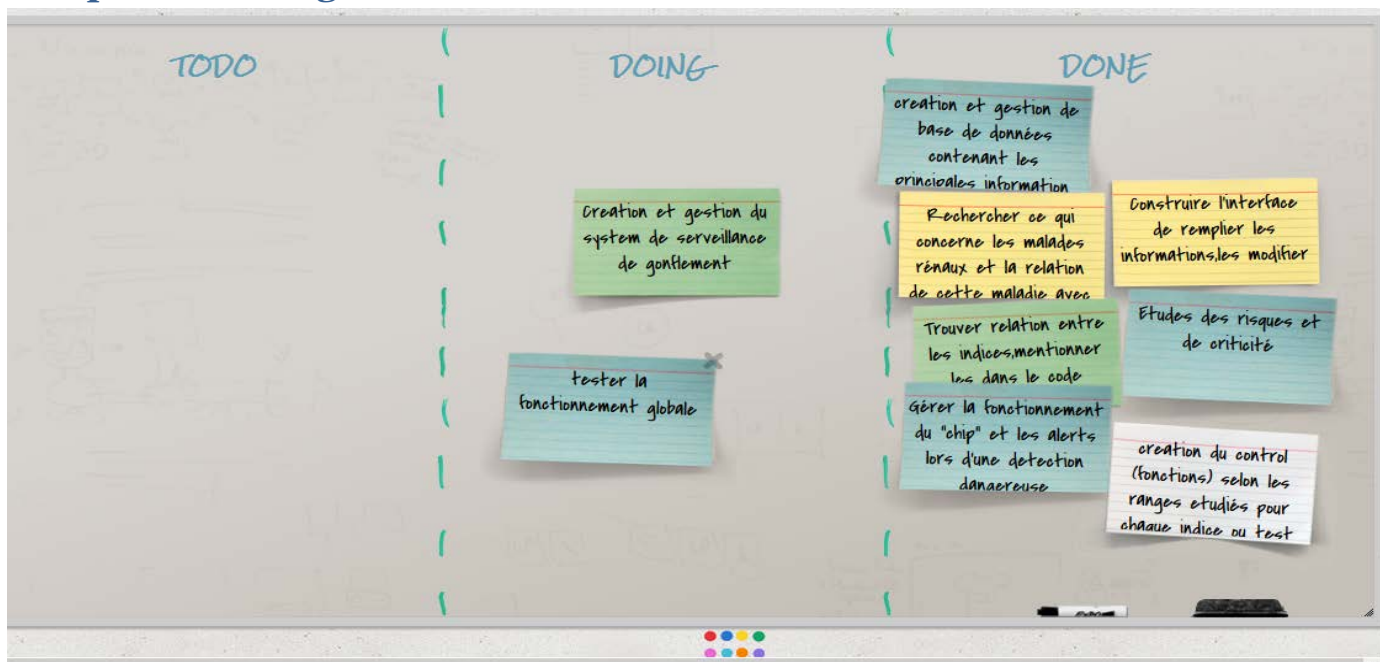 TODO
DOING
DONE
Creation et gestion du
system de serveillance
de gonflement
tester la
fonctionnement globale
creation et gestion de
base de données
contenant les
principales information
Rechercher ce qui
concerne les malades
rénaux et la relation
de cette maladie avec
Construire l'interface
de remplier les
informations,les modifier
Trouver relation entre
les indices,mentionner
les dans le code
Etudes des risques et
de criticité
Gérer la fonctionnement
du "chip" et les alerts
lors d'une detection
dangereuse
creation du control
(fonctions) selon les
ranges etudiés pour
chaque indice ou test